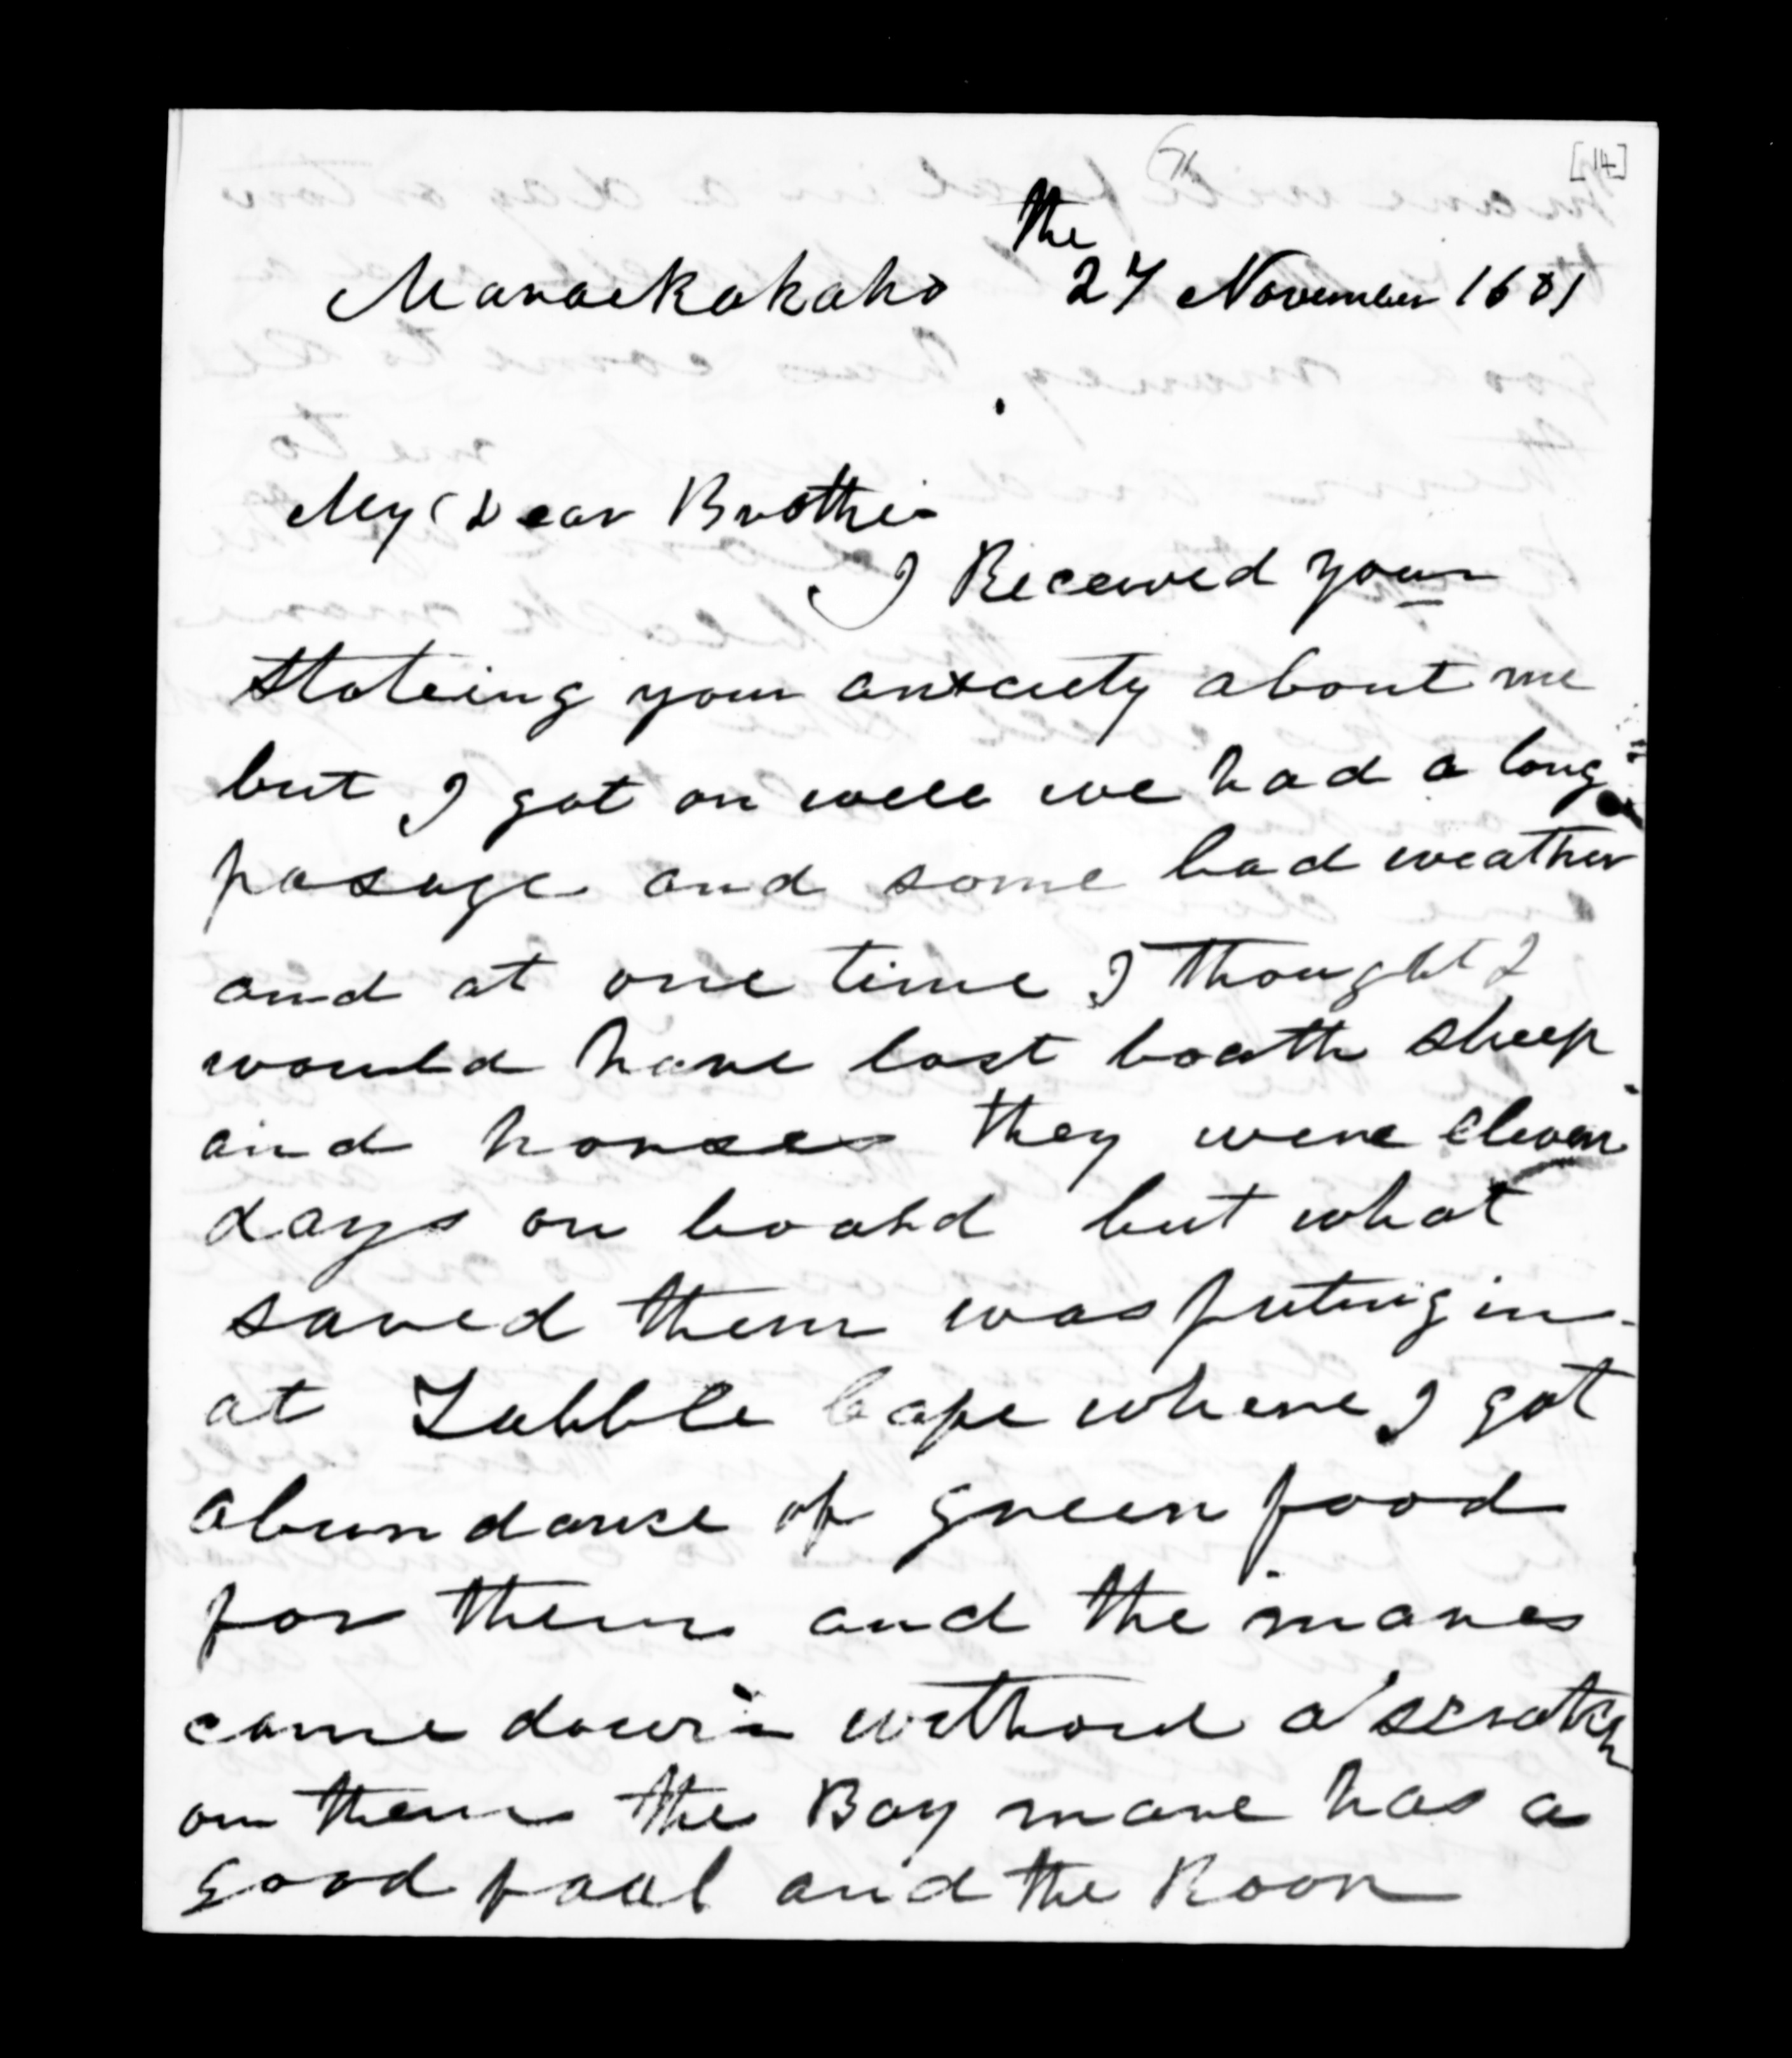 [14]
The
Maraekakaho 27 November 1681
My Dear Brother
I Received your
stateing your anxciety about me
but I got on well we had a long
pasage and some bad weather
and at one time I thought I
would have lost boath sheep
and horses they were eleven
days on board but what
saved them was puting in
at Tabble Cape where I got
abundance of green food
for them and the mares
came down without a scratch
on them the Bay mare has a
good foal and the Roon